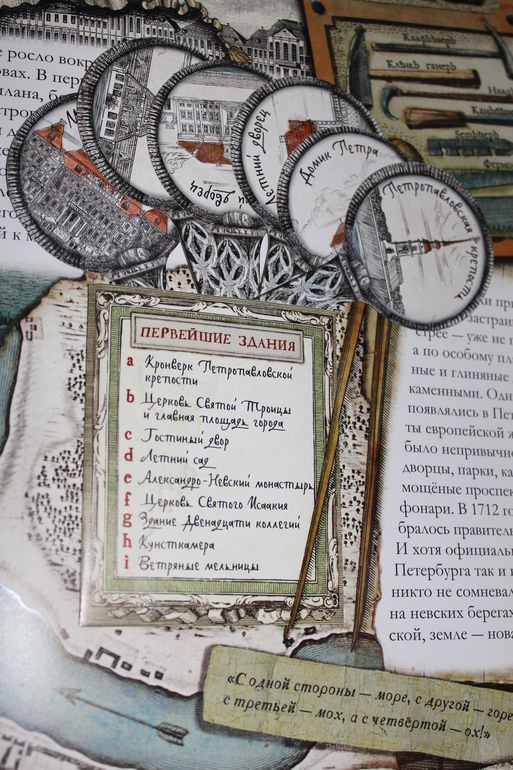 е росло вокр
овах. В пер
плана, б
Летний дворец
Домик Петра
Петропавловская крепость
дворец
Клещъ гамеръ
ПЕРВЕЙШИЕ ЗДАНИЯ
a Кронверк Петропавловской
крепости
b Церковь Святой Троицы
и главная площадь города
c Гостиный двор
d Летний сад
e Александро-Невский монастырь
f Церковь Святого Исаакия
g Здание Двенадцати коллегий
h Кунсткамера
i Ветряные мельницы
застраи
стрее — уже не п
а по особому пл
ные и глиняные
каменными. Одн
появлялись в Пет
ты европейской ж
было непривычн
дворцы, парки, ка
мощёные проспек
фонари. В 1712 го
бралось правитель
И хотя официаль
Петербурга так и н
никто не сомневал
на невских берегах
ской, земле — нова
«С одной стороны — море, с другой — горе
с третьей — мох, а с четвёртой — ох!»